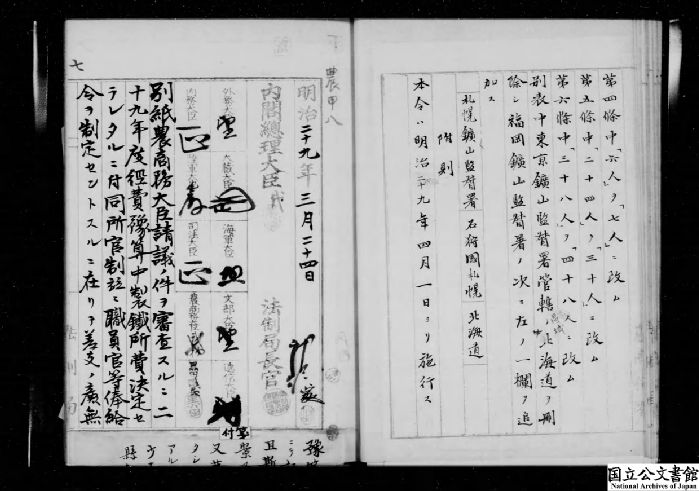 第四條中「六人」ヲ「七人」ニ改ム
第五條中「二十四人」ヲ「三十人」ニ改ム
第六條中「三十八人」ヲ「四十八人」ニ改ム
別表中東京鑛山監督署管轄區域中北海道ヲ刪
除シ福岡鑛山監督署ノ次ニ左ノ一欄ヲ追
加ス
札幌鑛山監督署 石狩國札幌 北海道
附則
本令ハ明治二十九年四月一日ヨリ施行ス
農甲八
明治二十九年三月二十四日
內閣總理大臣
法制局長官
外務大臣
大藏大臣
海軍大臣
文部大臣
內務大臣
陸軍大臣
司法大臣
農商務大臣
別紙農商務大臣請議ノ件ヲ審查スルニ二
十九年度經費豫算中製鐵所費決定セ
ラレタルニ付同所官制竝ニ職員官等俸給
令ヲ制定セントスルニ在リテ差支ノ廉無
七
國立公文書館
National Archives of Japan